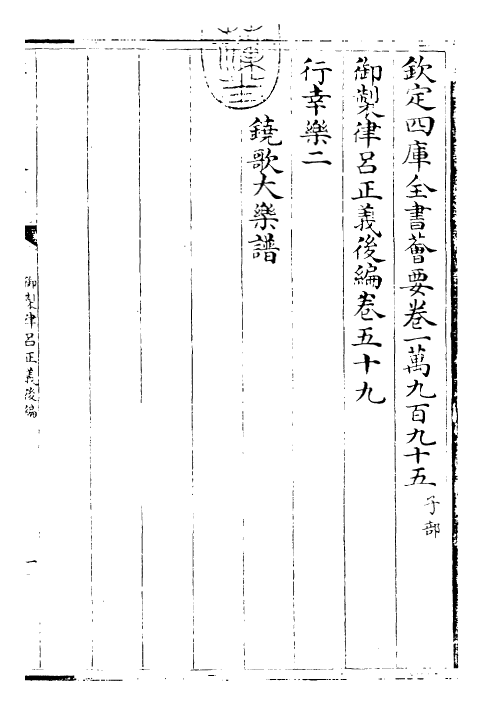 欽定四庫全書薈要卷一萬九百九十五 子部
御製律呂正義後編卷五十九
行幸樂二
鐃歌大樂譜
御製律呂正義後編
一